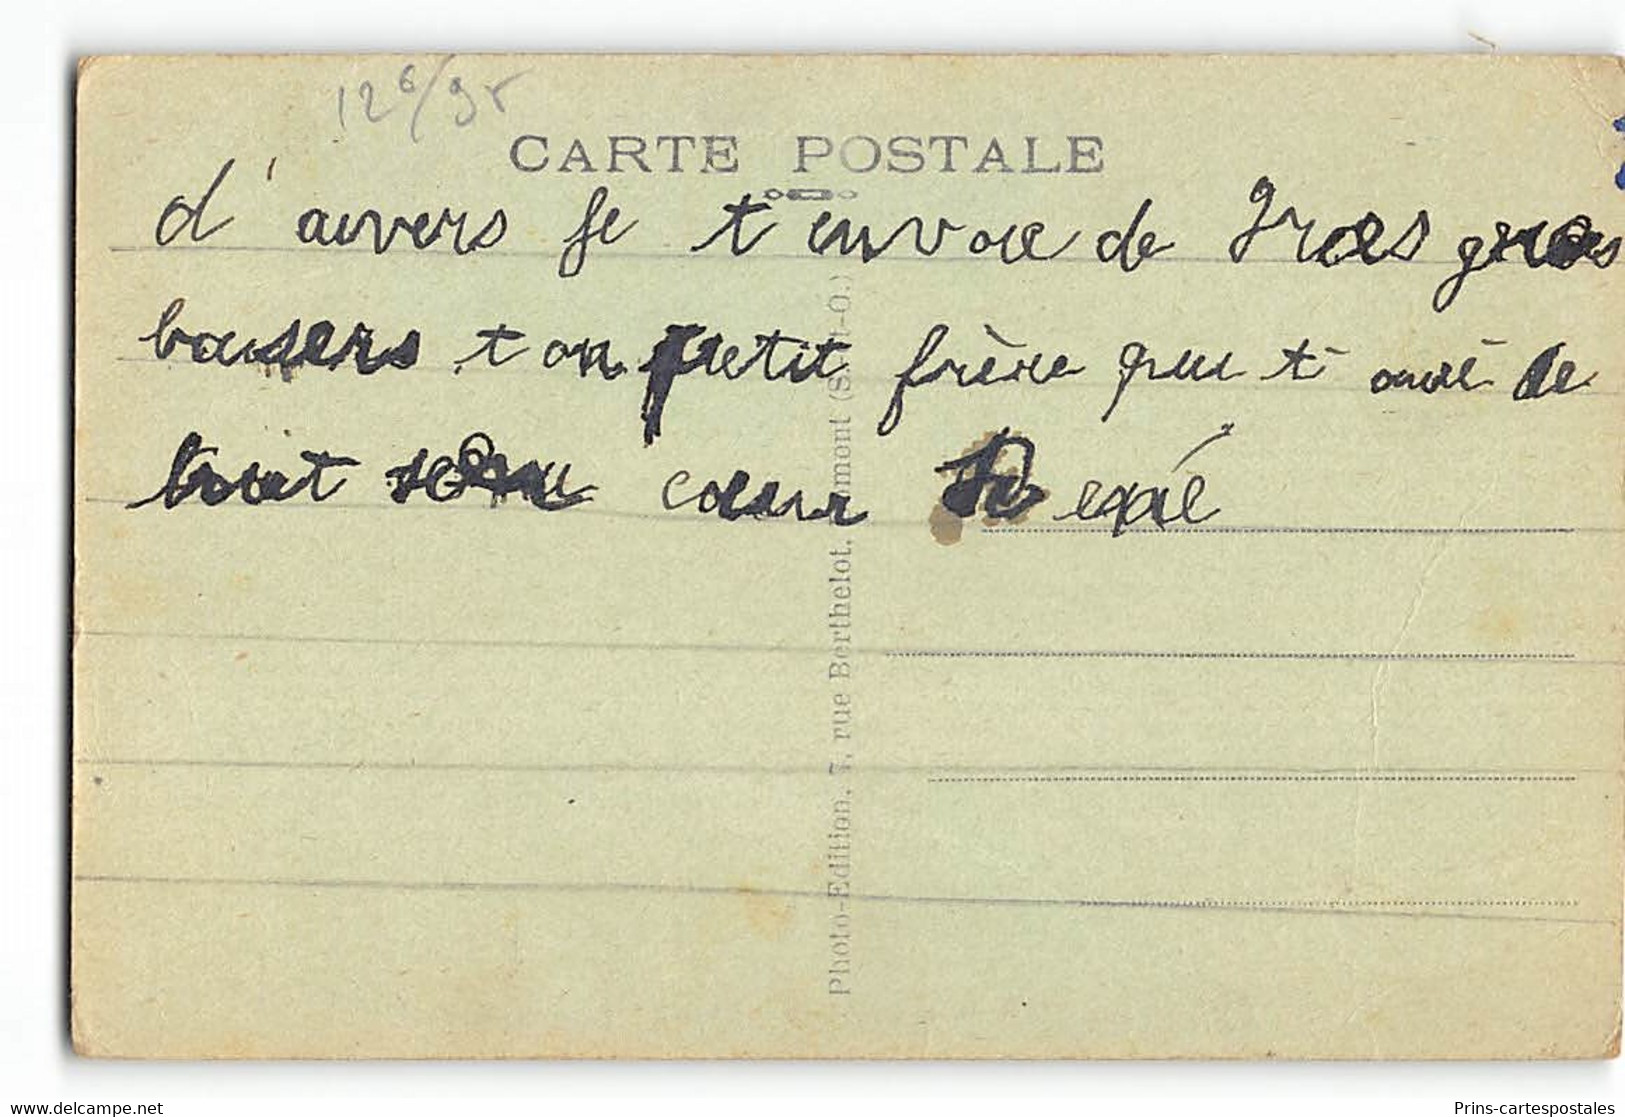 126/95
CARTE POSTALE
d'auvers je t envoie de gros gros
baisers ton petit frère qui t'aime de
tout son coeur
Photo-Edition, 7, rue Berthelot,
delcampe.net
Prins-cartespostales